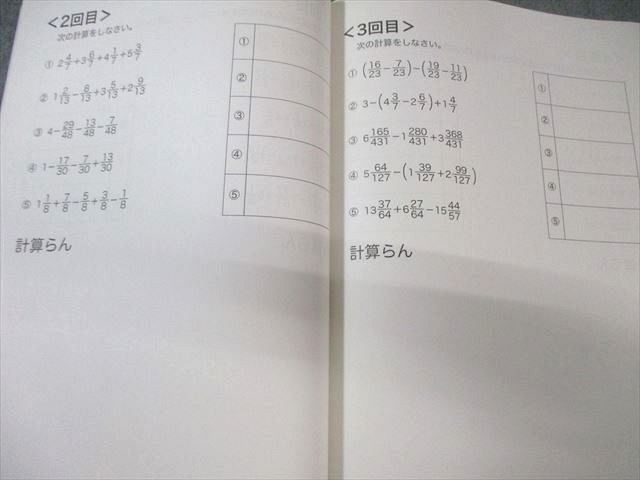 <2回目>
次の計算をしなさい。
① 2 4/7 + 3 6/7 + 4 1/7 + 5 3/7
② 1 2/13 − 8/13 + 3 5/13 + 2 9/13
③ 4 − 29/48 − 13/48 − 7/48
④ 1 − 17/30 − 7/30 + 13/30
⑤ 1 1/8 + 7/8 − 5/8 + 3/8 − 1/8
①
②
③
④
⑤
計算らん
<3回目>
次の計算をしなさい。
① (16/23 − 7/23) − (19/23 − 11/23)
② 3 − (4 3/7 − 2 6/7) + 1 4/7
③ 6 165/431 − 1 280/431 + 3 368/431
④ 5 64/127 − (1 39/127 + 2 99/127)
⑤ 13 37/64 + 6 27/64 − 15 44/57
①
②
③
④
⑤
計算らん